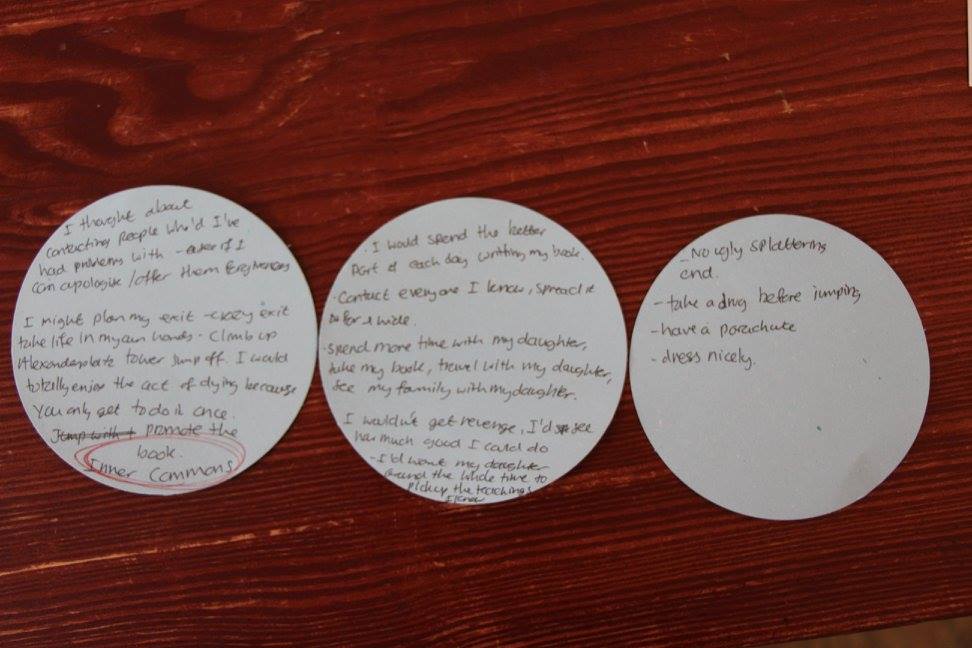 I thought about
contacting people who'd I've
had problems with - even if I
can apologise / offer them forgiveness
I might plan my exit - crazy exit
take life in my own hands - Climb up
Alexanderplatz tower jump off. I would
totally enjoy the act of dying because
you only get to do it once.
Jump with promote the
book.
Inner Commons
. I would spend the better
part of each day writing my book.
· Contact everyone I know, spread it
far & wide.
· spend more time with my daughter,
take my book, travel with my daughter,
see my family with my daughter.
I wouldn't get revenge, I'd see
how much good I could do
- I'd want my daughter
around the whole time to
pick up the teachings
I know
- No ugly splattering
end.
- take a drug before jumping
- have a parachute
- dress nicely.